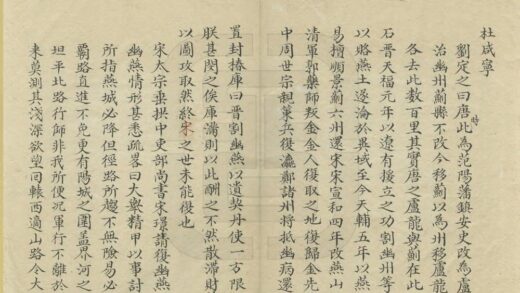 杜咸寧
劉定之曰唐此時為范陽藩鎮安史改為盧
治幽州薊縣不改今移薊以為州移盧龍
各去此數百里其實唐之盧龍與薊在此
石晉天福元年以遼有援立之功割幽州等
以賂燕土遂淪於異域至今天輔五年以燕
易檀順景薊六州還宋宋宣和四年改燕山
清軍郭藥師叛金金人復取之地復歸金先
中周世宗親策兵復瀛鄚諸州將抵幽病還
置封樁庫曰晉割幽燕以遺契丹使一方限
朕甚閔之俟庫滿則以此酬之不然散滯財
以圖攻取然終宋之世未能復也
宋太宗垂拱中吏部尚書宋環請復幽燕
幽燕情形甚悉疏畧曰大舉精甲以事討
所指燕城必降但徑路所趨不無險易必
霸路直進不免更有陽城之圍蓋界河之
坦平北路行師非我所便況軍行不離於
来莫測其淺深欲望回轅西適山路令大